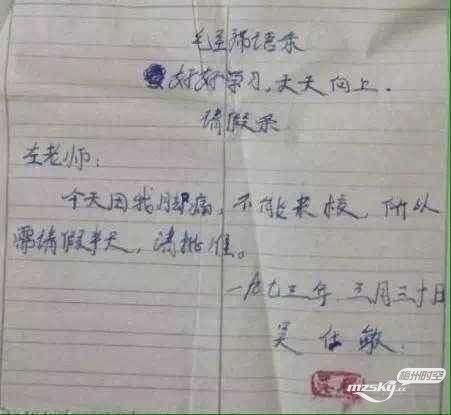 毛主席语录
好好学习,天天向上.
请假条
左老师:
今天因我痛,不能来校,所以
需请假半天,请批准。
一九七三年 三月三十日
吴仕敏.
梅州时空
mzsky.cc